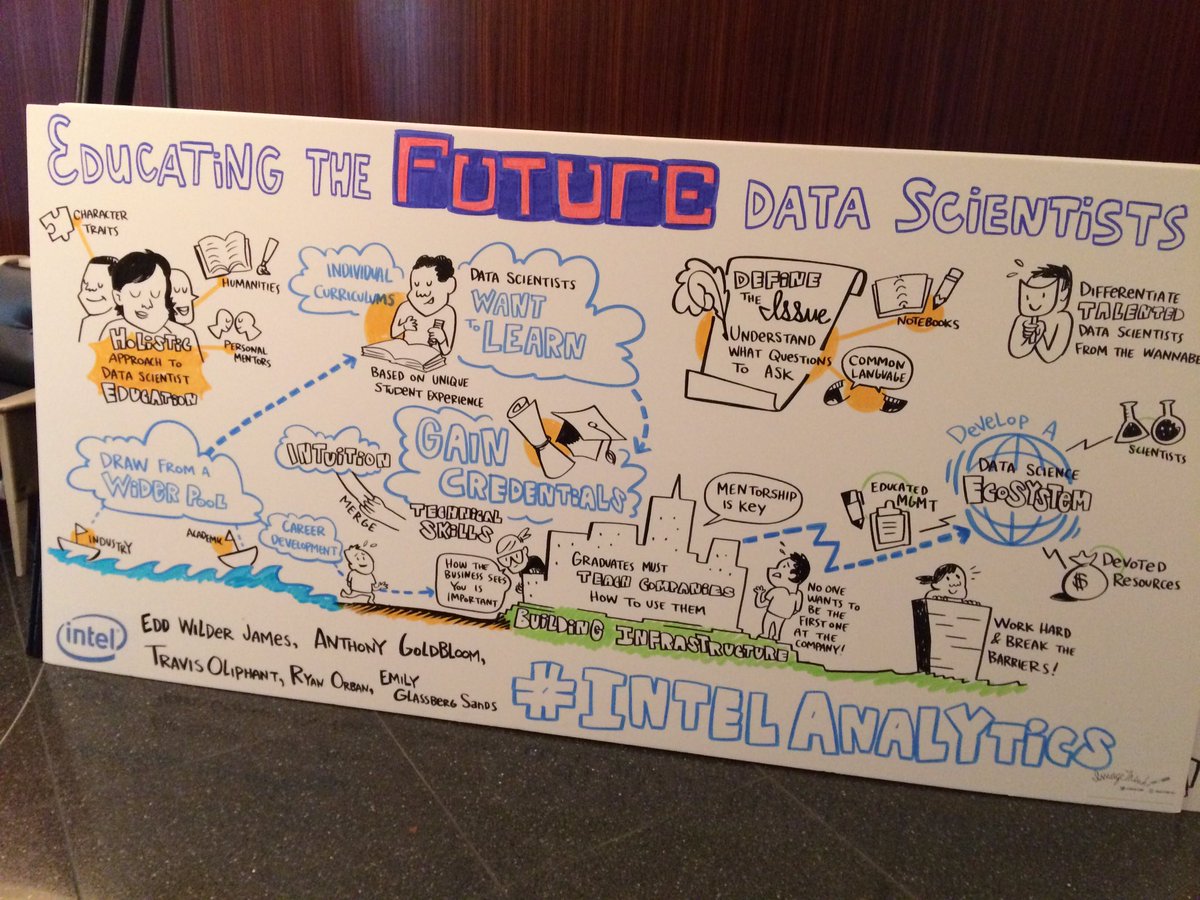 EDUCATING THE FUTURE DATA SCIENTISTS
CHARACTER
TRAITS
HUMANITIES
PERSONAL
MENTORS
HOLISTIC
APPROACH TO
DATA SCIENTIST
EDUCATION
INDIVIDUAL
CURRICULUMS
DATA SCIENTISTS
WANT
TO
LEARN
BASED ON UNIQUE
STUDENT EXPERIENCE
DEFINE
THE ISSUE
UNDERSTAND
WHAT QUESTIONS
TO ASK
NOTEBOOKS
COMMON
LANGUAGE
DIFFERENTIATE
TALENTED
DATA SCIENTISTS
FROM THE WANNABE
DRAW FROM A
WIDER POOL
INDUSTRY
ACADEMIC
CAREER
DEVELOPMENT
INTUITION
MERGE
TECHNICAL
SKILLS
GAIN
CREDENTIALS
HOW THE
BUSINESS SEES
YOU IS
IMPORTANT
MENTORSHIP
IS KEY
GRADUATES MUST
TEACH COMPANIES
HOW TO USE THEM
BUILDING INFRASTRUCTURE
NO ONE
WANTS TO
BE THE
FIRST ONE
AT THE
COMPANY!
EDUCATED
MGMT
DEVELOP A
DATA SCIENCE
ECOSYSTEM
SCIENTISTS
DEVOTED
RESOURCES
WORK HARD
& BREAK THE
BARRIERS!
intel
EDD WILDER JAMES, ANTHONY GOLDBLOOM,
TRAVIS OLIPHANT, RYAN ORBAN, EMILY
GLASSBERG SANDS
#INTELANALYTICS